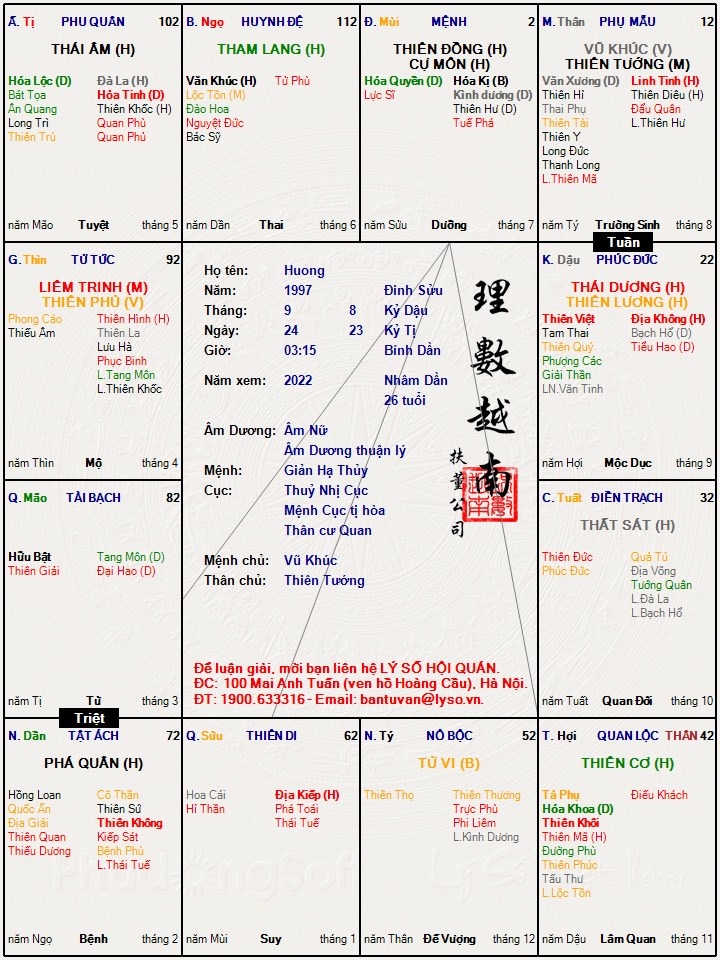 Ấ. Tị PHU QUÂN 102
THÁI ÂM (H)
Hóa Lộc (D) Đà La (H)
Bát Tọa Hỏa Tinh (D)
Ân Quang Thiên Khốc (H)
Long Trì Quan Phù
Thiên Trù Quan Phủ
năm Mão Tuyệt tháng 5
B. Ngọ HUYNH ĐỆ 112
THAM LANG (H)
Văn Khúc (H) Tử Phù
Lộc Tồn (M)
Đào Hoa
Nguyệt Đức
Bác Sỹ
năm Dần Thai tháng 6
Đ. Mùi MỆNH 2
THIÊN ĐỒNG (H)
CỰ MÔN (H)
Hóa Quyền (D) Hóa Kị (B)
Lực Sĩ Kình dương (D)
Thiên Hư (D)
Tuế Phá
năm Sửu Dưỡng tháng 7
M. Thân PHỤ MẪU 12
VŨ KHÚC (V)
THIÊN TƯỚNG (M)
Văn Xương (D) Linh Tinh (H)
Thiên Hỉ Thiên Diêu (H)
Thai Phụ Đẩu Quân
Thiên Tài L.Thiên Hư
Thiên Y
Long Đức
Thanh Long
L.Thiên Mã
năm Tý Trường Sinh tháng 8
Tuần
G. Thìn TỬ TỨC 92
LIÊM TRINH (M)
THIÊN PHỦ (V)
Phong Cáo Thiên Hình (H)
Thiếu Âm Thiên La
Lưu Hà
Phục Binh
L.Tang Môn
L.Thiên Khốc
năm Thìn Mộ tháng 4
Họ tên: Huong
Năm: 1997 Đinh Sửu
Tháng: 9 8 Kỷ Dậu
Ngày: 24 23 Kỷ Tị
Giờ: 03:15 Bính Dần
Năm xem: 2022 Nhâm Dần
26 tuổi
Âm Dương: Âm Nữ
Âm Dương thuận lý
Mệnh: Giản Hạ Thủy
Cục: Thuỷ Nhị Cục
Mệnh Cục tị hòa
Thân cư Quan
Mệnh chủ: Vũ Khúc
Thân chủ: Thiên Tướng
理數越南
扶董公司
Để luận giải, mời bạn liên hệ LÝ SỐ HỘI QUÁN.
ĐC: 100 Mai Anh Tuấn (ven hồ Hoàng Cầu), Hà Nội.
ĐT: 1900.633316 - Email: bantuvan@lyso.vn.
K. Dậu PHÚC ĐỨC 22
THÁI DƯƠNG (H)
THIÊN LƯƠNG (H)
Thiên Việt Địa Không (H)
Tam Thai Bạch Hổ (D)
Thiên Quý Tiểu Hao (D)
Phượng Các
Giải Thần
LN.Văn Tinh
năm Hợi Mộc Dục tháng 9
Q. Mão TÀI BẠCH 82
Hữu Bật Tang Môn (D)
Thiên Giải Đại Hao (D)
năm Tị Tử tháng 3
Triệt
C. Tuất ĐIỀN TRẠCH 32
THẤT SÁT (H)
Thiên Đức Quả Tú
Phúc Đức Địa Võng
Tướng Quân
L.Đà La
L.Bạch Hổ
năm Tuất Quan Đới tháng 10
N. Dần TẬT ÁCH 72
PHÁ QUÂN (H)
Hồng Loan Cô Thần
Quốc Ấn Thiên Sứ
Địa Giải Thiên Không
Thiên Quan Kiếp Sát
Thiếu Dương Bệnh Phù
L.Thái Tuế
năm Ngọ Bệnh tháng 2
Q. Sửu THIÊN DI 62
Hoa Cái Địa Kiếp (H)
Hỉ Thần Phá Toái
Thái Tuế
năm Mùi Suy tháng 1
N. Tý NÔ BỘC 52
TỬ VI (B)
Thiên Thọ Thiên Thương
Trực Phù
Phi Liêm
L.Kình Dương
năm Thân Đế Vượng tháng 12
T. Hợi QUAN LỘC THÂN 42
THIÊN CƠ (H)
Tả Phụ Điếu Khách
Hóa Khoa (D)
Thiên Khôi
Thiên Mã (H)
Đường Phù
Thiên Phúc
Tấu Thư
L.Lộc Tồn
năm Dậu Lâm Quan tháng 11